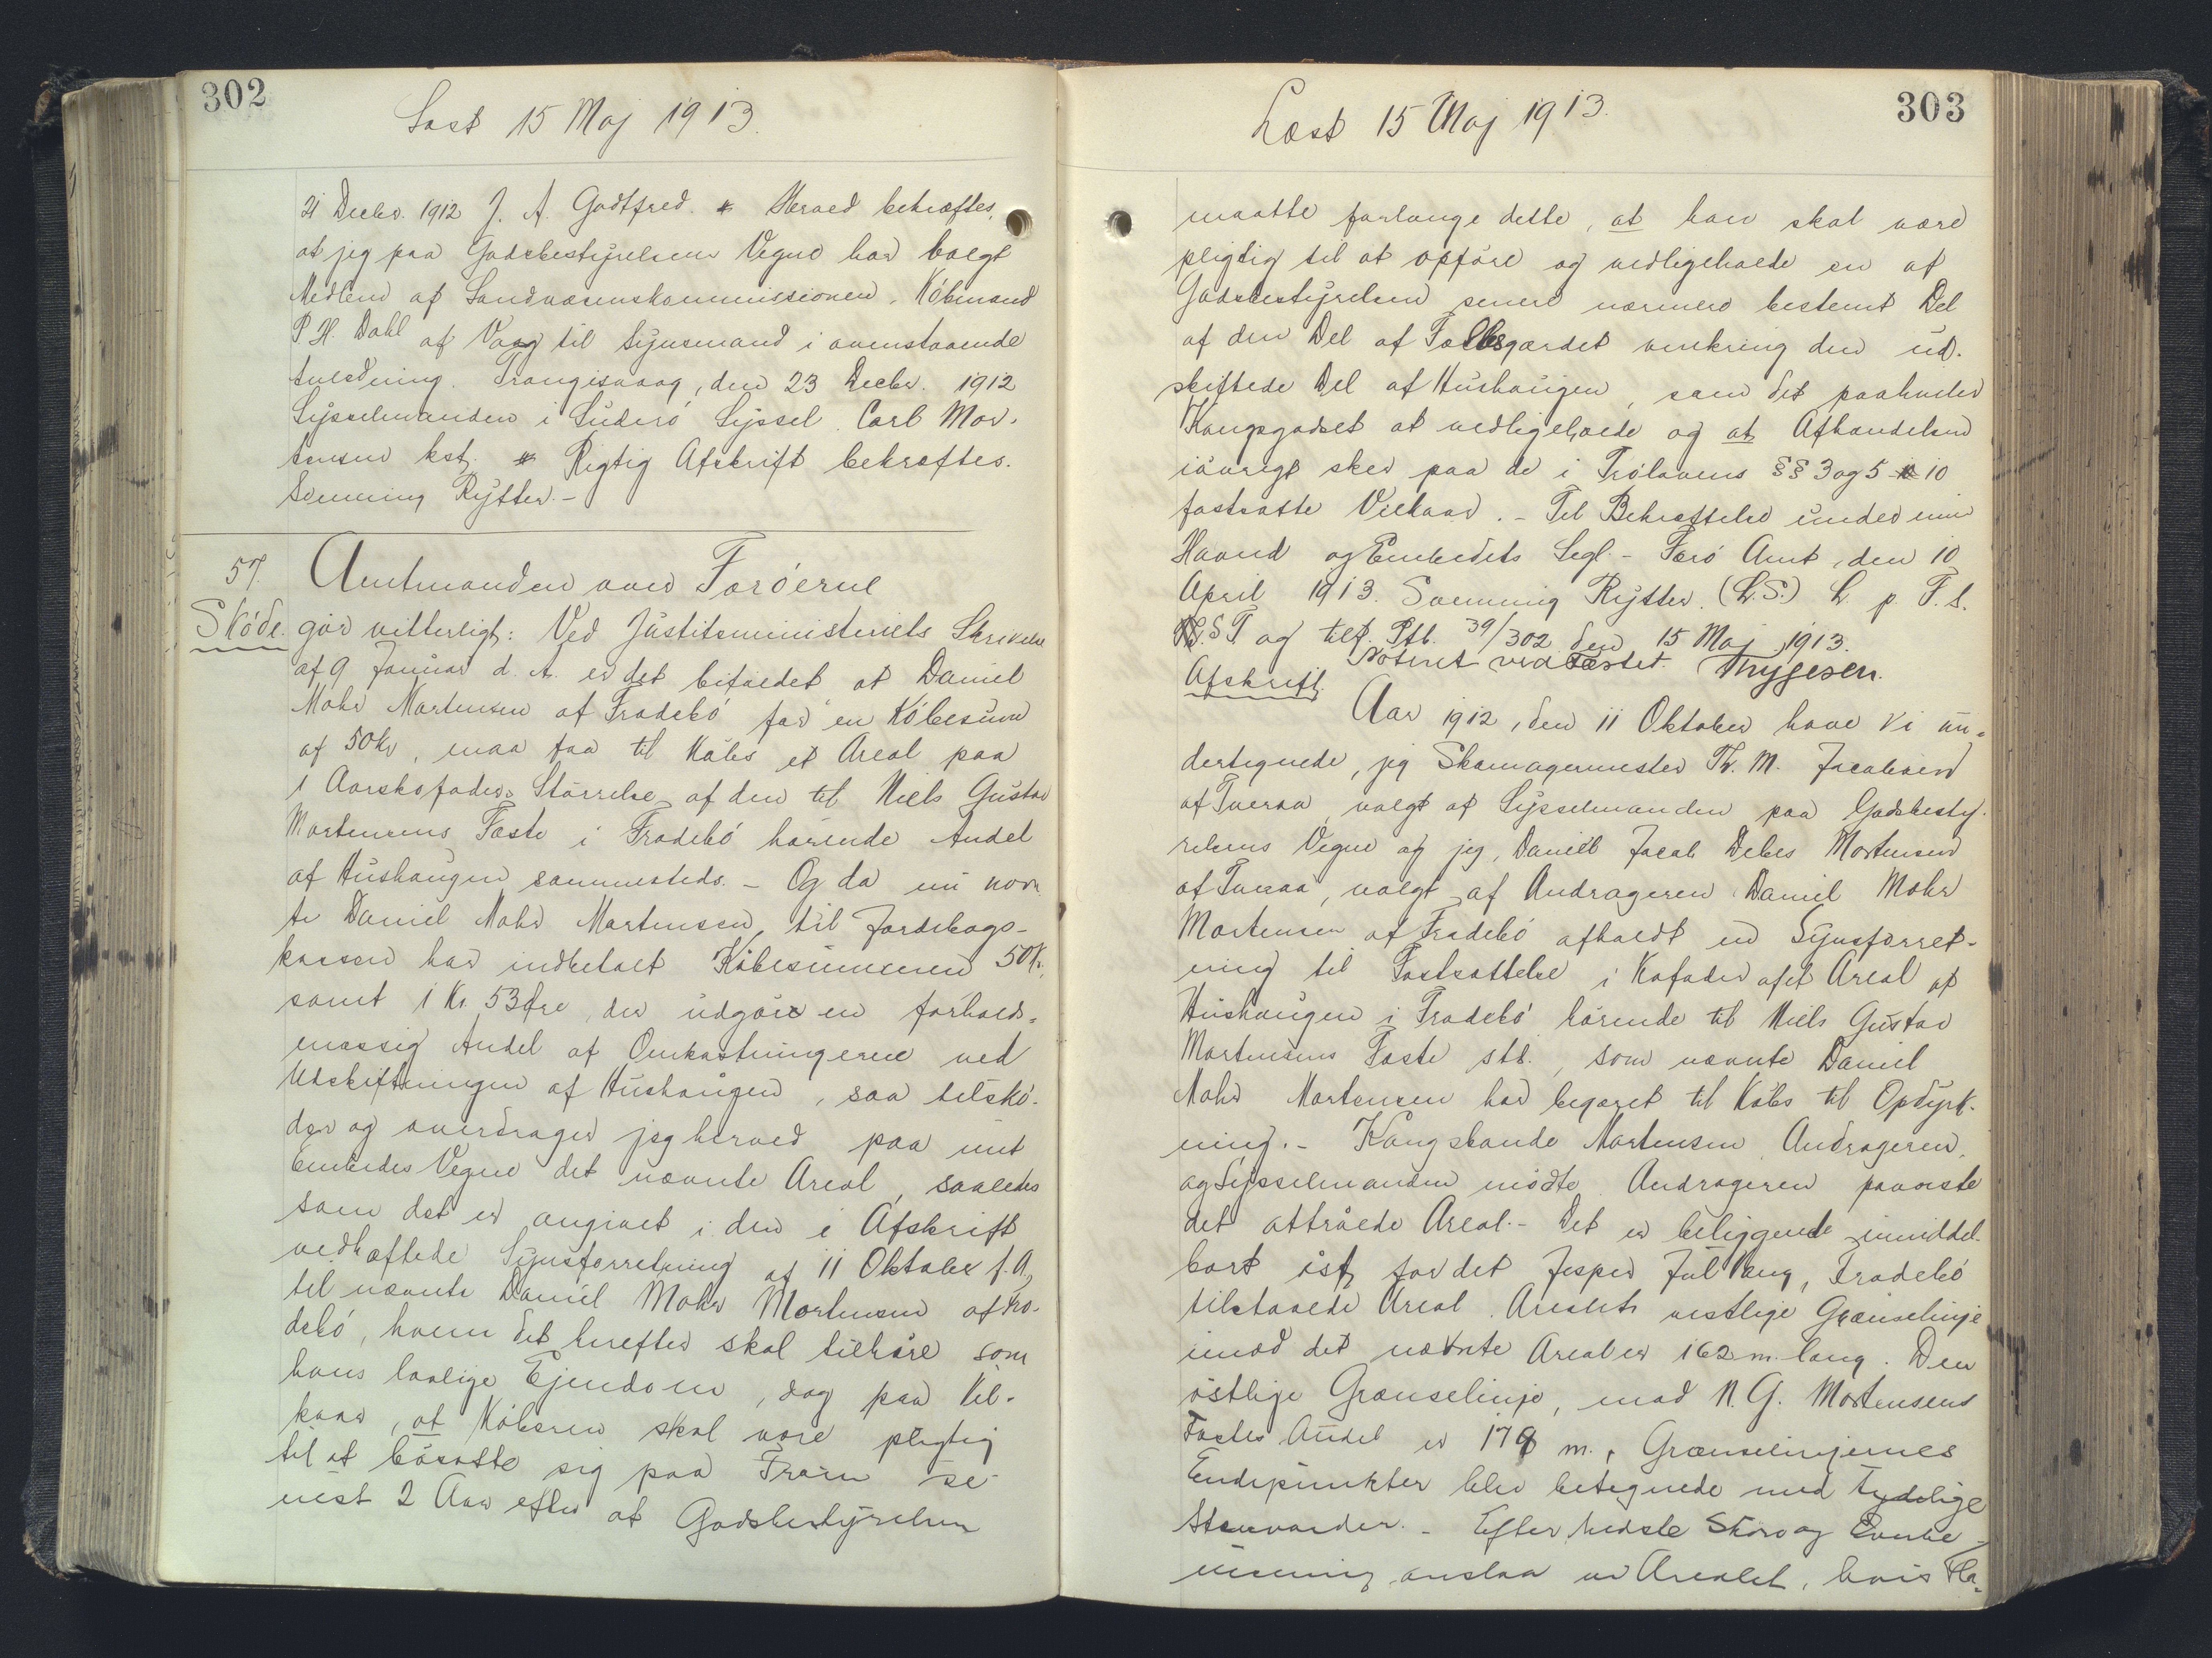 302
Læst 15 Maj 1913.
21 Decbr. 1912 J. A. Godtfred. * Herved bekræftes,
at jeg paa Godsbestyrelsens Vegne har valgt
Medlem af Landvæsenskommissionen, Köbmand
P. H. Dahl af Vaag til Synsmand i ovenstaaende
Anledning. Trangisvaag, den 23 Decbr. 1912
Sysselmanden i Suderö Syssel. Carl Mor-
tensen kst. * Rigtig Afskrift bekræftes.
Svenning Rytter.-
57. Amtmanden over Færöerne
Sköde. gör vitterligt: Ved Justitsministeriets Skrivelse
af 9 Januar d. A. er det bifaldet at Daniel
Mohr Mortensen af Frodebö for en Köbesum
af 50 Kr, maa faa til Köbs et Areal paa
1 Aarskofoders Störrelse af den til Niels Gustav
Mortensens Fæste i Frodebö hörende Andel
af Hushaugen sammesteds. - Og da nu nævn-
te Daniel Mohr Mortensen til Jordebogs-
kassen har indbetalt Köbesummen 50 Kr.
samt 1 Kr. 53 Öre, der udgöre en forholds-
mæssig Andel af Omkostningerne ved
Udskiftningen af Hushaugen, saa tilskö-
der og overdrager jeg herved paa mit
Embedes Vegne det nævnte Areal, saaledes
som det er angivet i den i Afskrift
vedhæftede Synsforretning af 11 Oktober f. A.,
til nævnte Daniel Mohr Mortensen af Fro-
debö, hvem det herefter skal tilhöre som
hans lovlige Ejendom, dog paa Vil-
kaar, at Köberen skal være pligtig
til at bösætte sig paa Tröen se-
nest 2 Aar efter at Godsbestyrelsen
303
Læst 15 Maj 1913.
maatte forlange dette, at han skal være
pligtig til at opföre og vedligeholde en af
Godsbestyrelsen senere nærmere bestemt Del
af den Del af Fællesgærdet omkring den ud-
skiftede Del af Hushaugen, som det paahviler
Kongsgodset at vedligeholde og at Afhændelsen
iövrigt sker paa de i Trölovens §§ 3 og 5 - 10
fastsatte Vilkaar. - Til Bekræftelse under min
Haand og Embedets Segl. - Færö Amt, den 10
April 1913. Svenning Rytter. (L.S.) L. p. F. S.
S T og tilf. Ptb. 39/302 den 15 Maj 1913.
Noteret ved Fæstet. Thygesen.
Afskrift.
Aar 1912, den 11 Oktober have vi un-
dertegnede, jeg Skomagermester Th. M. Jacobsen
af Tveraa, valgt af Sysselmanden paa Godsbesty-
relsens Vegne og jeg, Daniel Jacob Debes Mortensen
af Tveraa, valgt af Andrageren Daniel Mohr
Mortensen af Frodebö afholdt en Synsforret-
ning til Fastsættelse i Kofoder af et Areal af
Hushaugen i Frodebö hörende til Niels Gustav
Mortensens Fæste stb., som nævnte Daniel
Mohr Mortensen har begæret til Köbs til Opdyrk-
ning. - Kongsbonde Mortensen, Andrageren,
og Sysselmanden mödte. Andrageren paaviste
det attråede Areal. - Det er beliggende umiddel-
bart öst for det Jesper Jul Vang, Frodebö
tilstaaede Areal. Arealets vestlige Grænselinje
imod det nævnte Areal er 162 m. lang. Den
östlige Grænselinje, mod N. G. Mortensens
Fæstes Andel er 178 m., Grænselinjernes
Endepunkter blev betegnede med tydelige
Stenvarder. - Efter bedste Skön og Overbe-
visning anslaa vi Arealet, hvis Fla-